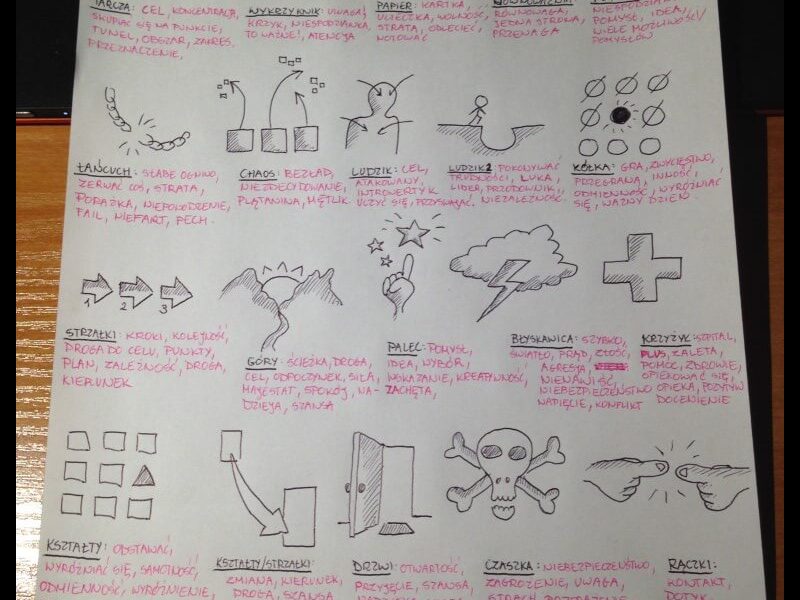 TARCZA: CEL, KONCENTRACJA,
SKUPIAĆ SIĘ NA PUNKCIE,
TUNEL, OBSZAR, ZAKRES,
PRZEZNACZENIE,
WYKRZYKNIK: UWAGA!
KRZYK, NIESPODZIANKA,
TO WAŻNE!, ATENCJA
PAPIER: KARTKA,
UCIECZKA, WOLNOŚĆ,
STRATA, ODLECIEĆ,
NOTOWAĆ
RÓWNOWAGA,
JEDNA STRONA,
PRZEWAGA
POMYSŁ, IDEA,
WIELE MOŻLIWOŚCI/
POMYSŁÓW
ŁAŃCUCH: SŁABE OGNIWO,
ZERWAĆ COŚ, STRATA,
PORAŻKA, NIEPOWODZENIE,
FAIL, NIEFART, PECH
CHAOS: BEZŁAD,
NIEZDECYDOWANIE,
PLĄTANINA, MĘTLIK
LUDZIK: CEL,
ATAKOWANY,
INTROWERTYK
UCZYĆ SIĘ, PRZYSWAJAĆ
LUDZIK2 POKONYWAĆ
TRUDNOŚCI, LUKA,
LIDER, PRZODOWNIK,
NIEZALEŻNOŚĆ
KÓŁKA: GRA, ZWYCIĘSTWO,
PRZEGRANA, INNOŚĆ,
ODMIENNOŚĆ, WYRÓŻNIAĆ
SIĘ, WAŻNY DZIEŃ
1 2 3
STRZAŁKI: KROKI, KOLEJNOŚĆ,
DROGA DO CELU, PUNKTY,
PLAN, ZALEŻNOŚĆ, DROGA,
KIERUNEK
GÓRY: ŚCIEŻKA, DROGA,
CEL, ODPOCZYNEK, SIŁA,
MAJESTAT, SPOKÓJ, NA-
DZIEJA, SZANSA
PALEC: POMYSŁ,
IDEA, WYBÓR,
WSKAZANIE, KREATYWNOŚĆ,
ZACHĘTA,
BŁYSKAWICA: SZYBKO,
ŚWIATŁO, PRĄD, ZŁOŚĆ,
AGRESJA,
NIENAWIŚĆ,
NIEBEZPIECZEŃSTWO
NAPIĘCIE, KONFLIKT
KRZYŻYK: SZPITAL,
PLUS, ZALETA,
POMOC, ZDROWIE,
OPIEKOWAĆ SIĘ,
OPIEKA, POZYTYW
DOCENIENIE
KSZTAŁTY: ODSTAWAĆ,
WYRÓŻNIAĆ SIĘ, SAMOTNOŚĆ,
ODMIENNOŚĆ, WYRÓŻNIENIE,
KSZTAŁTY/STRZAŁKI:
ZMIANA, KIERUNEK,
DROGA, SZANSA
DRZWI: OTWARTOŚĆ,
PRZYJĘCIE, SZANSA,
CZASZKA: NIEBEZPIECZEŃSTWO,
ZAGROŻENIE, UWAGA,
RĄCZKI:
KONTAKT,
DOTYK